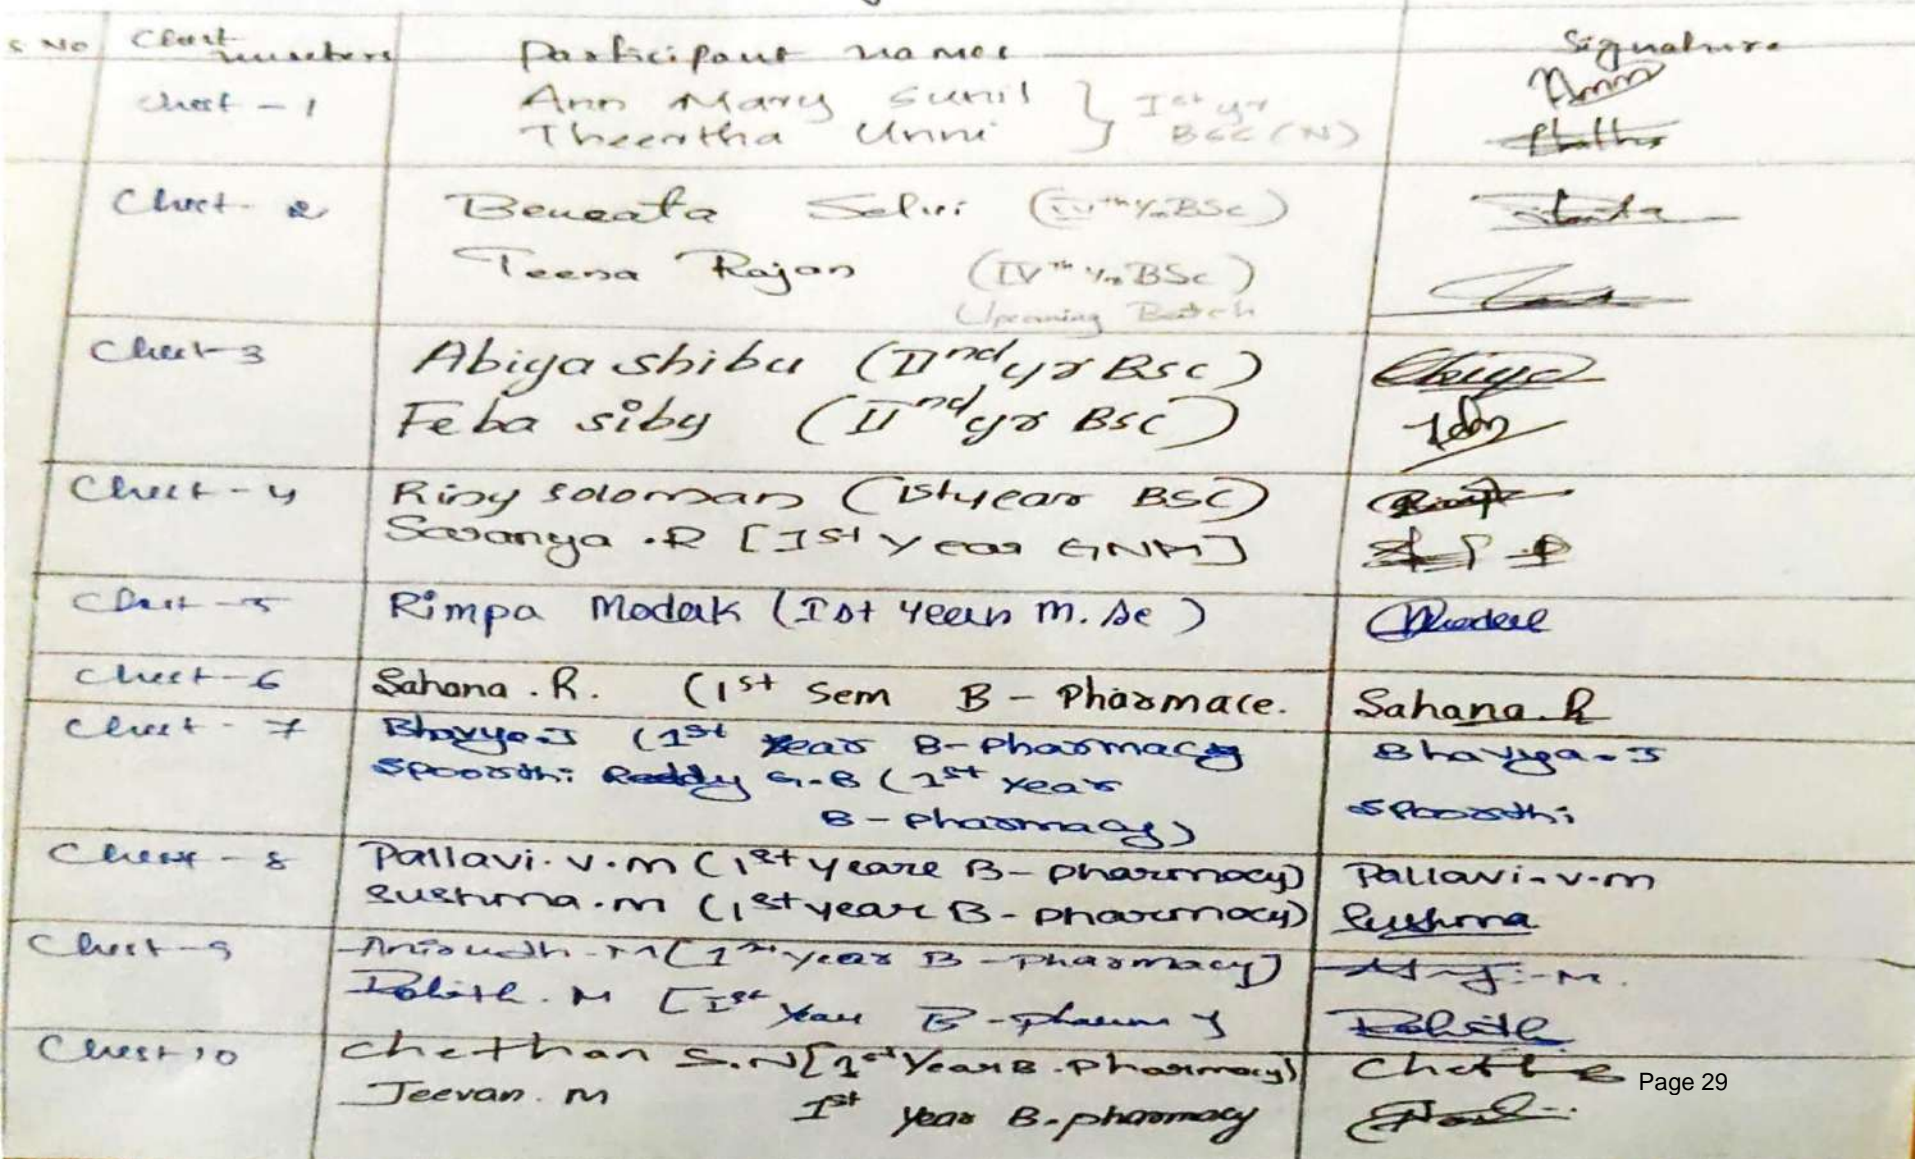 S. No Chest numbers Participant names Signature
Chest - 1 Ann Mary Sunil } Ist yr Ann
Theertha Unni BSC (N)
Chest - 2 Beneata Selvi (IVth Yr BSc)
Teena Rajan (IVth Yr BSc)
Upcoming Batch
Chest-3 Abiya shibu (IInd yr BSC) Abiya
Feba siby (IInd yr BSC)
Chest - 4 Riny soloman (1st year BSC)
Saranya .R [Ist year GNM]
Chest - 5 Rimpa Modak (Ist Year M. Sc)
Chest - 6 Sahana . R. (1st Sem B - Pharmace. Sahana. R
Chest - 7 Bhavya.J (1st Year B-Pharmacy Bhavya.J
Spoorthi Reddy G.B (1st Year Spoorthi
B - Pharmacy)
Chest - 8 Pallavi. v.m (1st yeare B- pharmacy) Pallavi.v.m
Sushma.m (1st year B- pharmacy) Sushma
Chest - 9 Anirudh . M (1st year B - Pharmacy]
Rohith. M [Ist Year B - Pharm ] Rohith
Chest 10 Chethan S.N [1st Year B. Pharmacy)
Jeevan. m Ist year B. pharmacy
Page 29